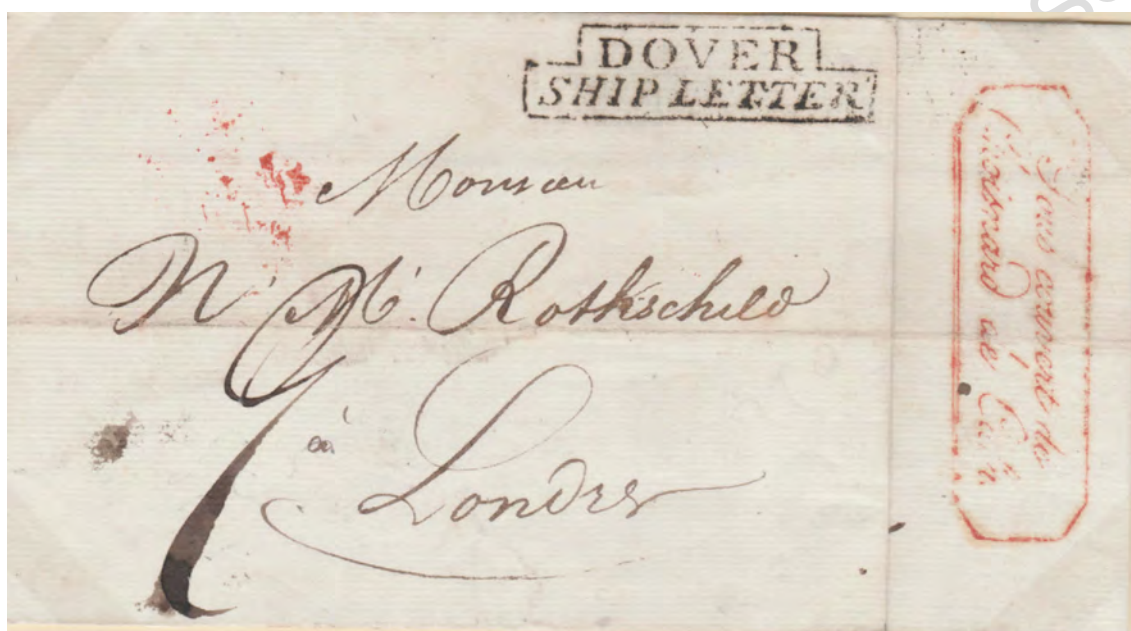 DOVER
SHIP LETTER
Monsieur
N. M. Rothschild
à
Londres
Sous couvert de
Choisnard de